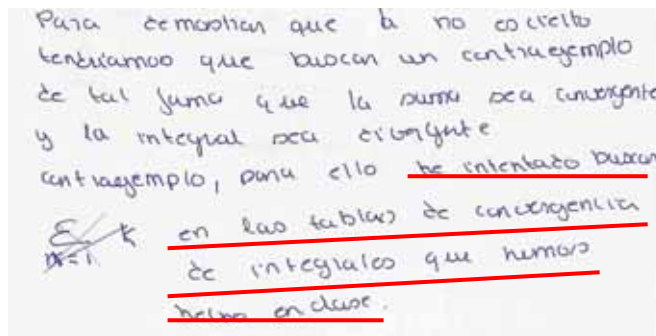 Para demostrar que a no es cierto
tendríamos que buscar un contraejemplo
de tal forma que la suma sea convergente
y la integral sea divergente
contraejemplo, para ello he intentado buscar
en las tablas de convergencia
de integrales que hemos
hecho en clase.